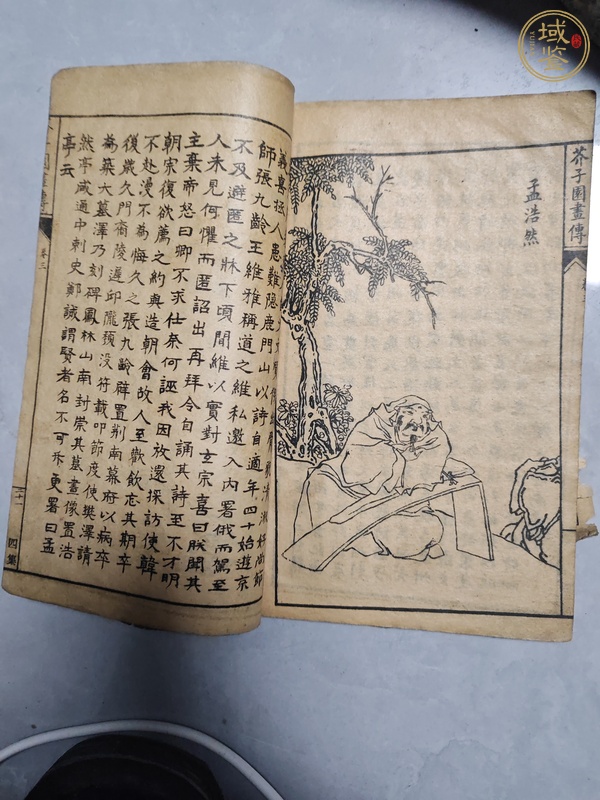 域鑒
芥子園畫傳
孟浩然
義喜拯人患難隱鹿門山以詩自適年四十始遊京
師張九齡王維雅稱道之維私邀入內署俄而駕至
不及避匿之牀下頃間維以實對玄宗喜曰朕聞其
人未見何懼而匿詔出再拜令自誦其詩至不才明
主棄帝怒曰卿不求仕奈何誣我因放還採訪使韓
朝宗復欲薦之約與造朝會故人至歡飲忘其期卒
不赴漫不為悔久之張九齡辟置荆南幕府以病卒
後歲久門裔陵遲邱隴頹没符載叩節度使樊澤請
為築大墓澤乃刻碑鳳林山南封崇其墓畫像置浩
然亭咸通中刺史鄭諴謂賢者名不可斥更署曰孟
亭云
子園畫傳
卷三
十一
四集